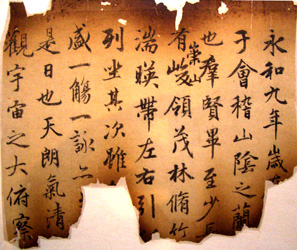 永和九年歲
于會稽山陰之蘭
也羣賢畢至少
有崇山峻領茂林脩竹
湍暎帶左右引
列坐其次雖
盛一觴一詠
是日也天朗氣清
觀宇宙之大俯察